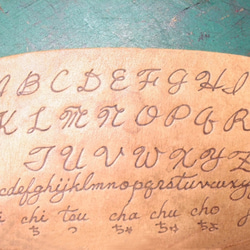 A B C D E F G H I
K L M N O P Q R
T U V W X Y Z
cdefghijklmnopqrstuvwxy
chi tsu cha chu cho
ち っ ちゃ ちゅ ちょ